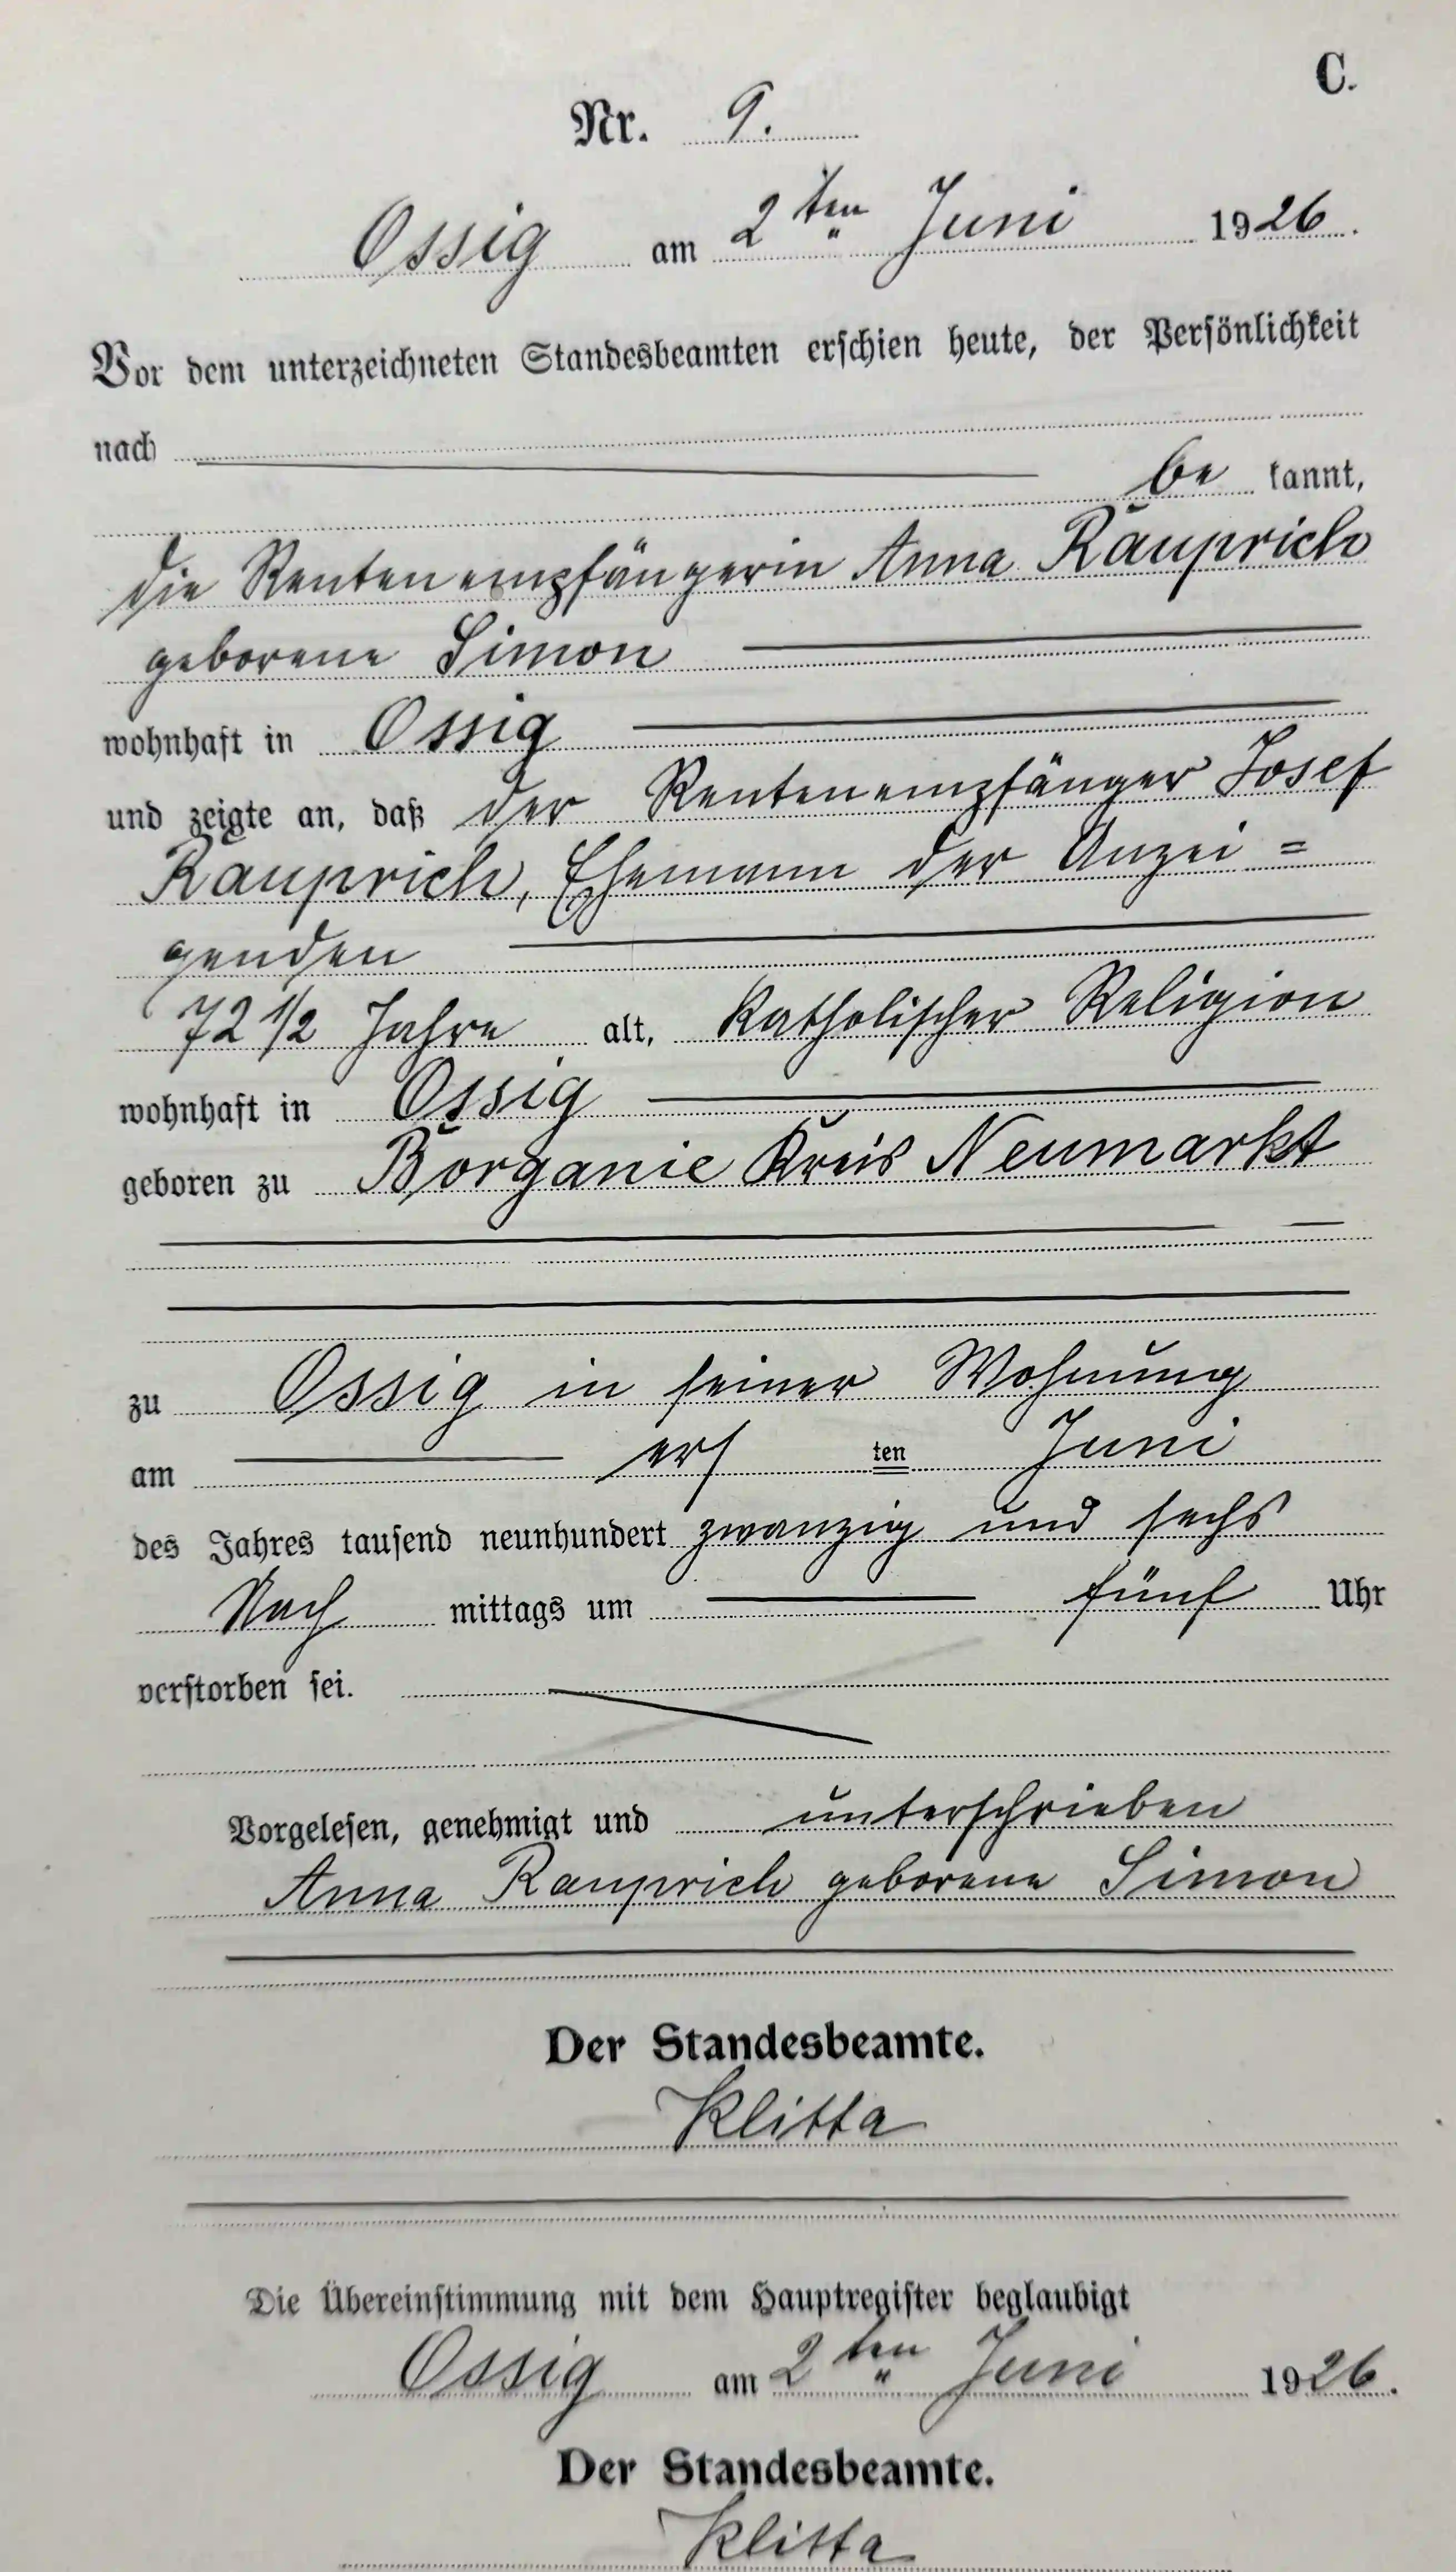 C.
Nr. 9.
Ossig am 2ten Juni 1926.
Vor dem unterzeichneten Standesbeamten erschien heute, der Persönlichkeit
nach
be kannt,
die Rentenempfängerin Anna Rauprich
geborene Simon
wohnhaft in Ossig
und zeigte an, daß der Rentenempfänger Josef
Rauprich, Ehemann der Anzei=
genden
72 1/2 Jahre alt, katholischer Religion
wohnhaft in Ossig
geboren zu Borganie Kreis Neumarkt
zu Ossig in seiner Wohnung
am ers ten Juni
des Jahres tausend neunhundert zwanzig und sechs
Nach mittags um fünf Uhr
verstorben sei.
Vorgelesen, genehmigt und unterschrieben
Anna Rauprich geborene Simon
Der Standesbeamte.
Klitta
Die Übereinstimmung mit dem Hauptregister beglaubigt
Ossig am 2ten Juni 1926.
Der Standesbeamte.
Klitta